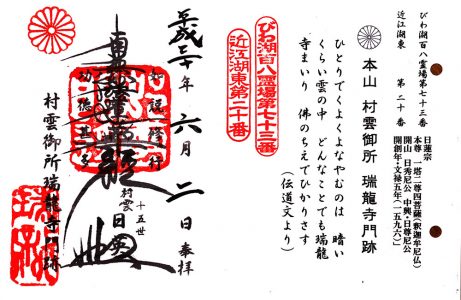 びわ湖百八霊場第七十三番
近江湖東 第二十番
日蓮宗
本尊 一塔二尊四菩薩(釈迦牟尼仏)
開山 日秀尼公 中興・日尊尼公
開創年・文禄五年(一五九六)
本山 村雲御所 瑞龍寺門跡
ひとりでくよくよなやむのは 暗い
くらい雲の中 どんなことでも瑞龍
寺まいり 佛のちえでひかりさす
(伝道文より)
びわ湖百八霊場第七十三番
近江湖東第二十番
平成三十年 六月 二日 奉拝
南無妙法蓮華経
十五世
村雲 日英
村雲御所瑞龍寺門跡